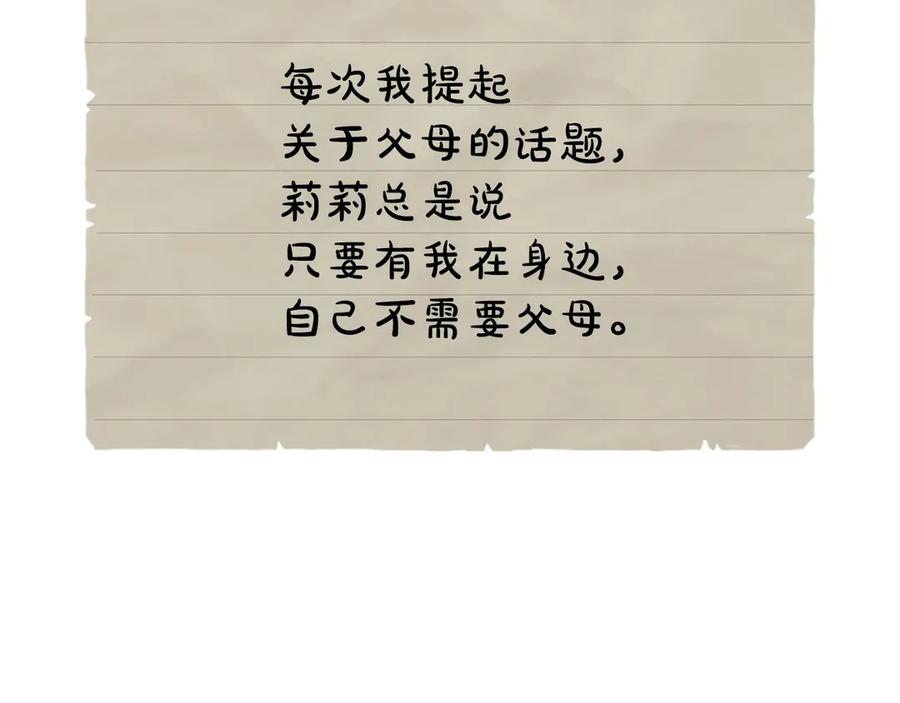 每次我提起
关于父母的话题，
莉莉总是说
只要有我在身边，
自己不需要父母。